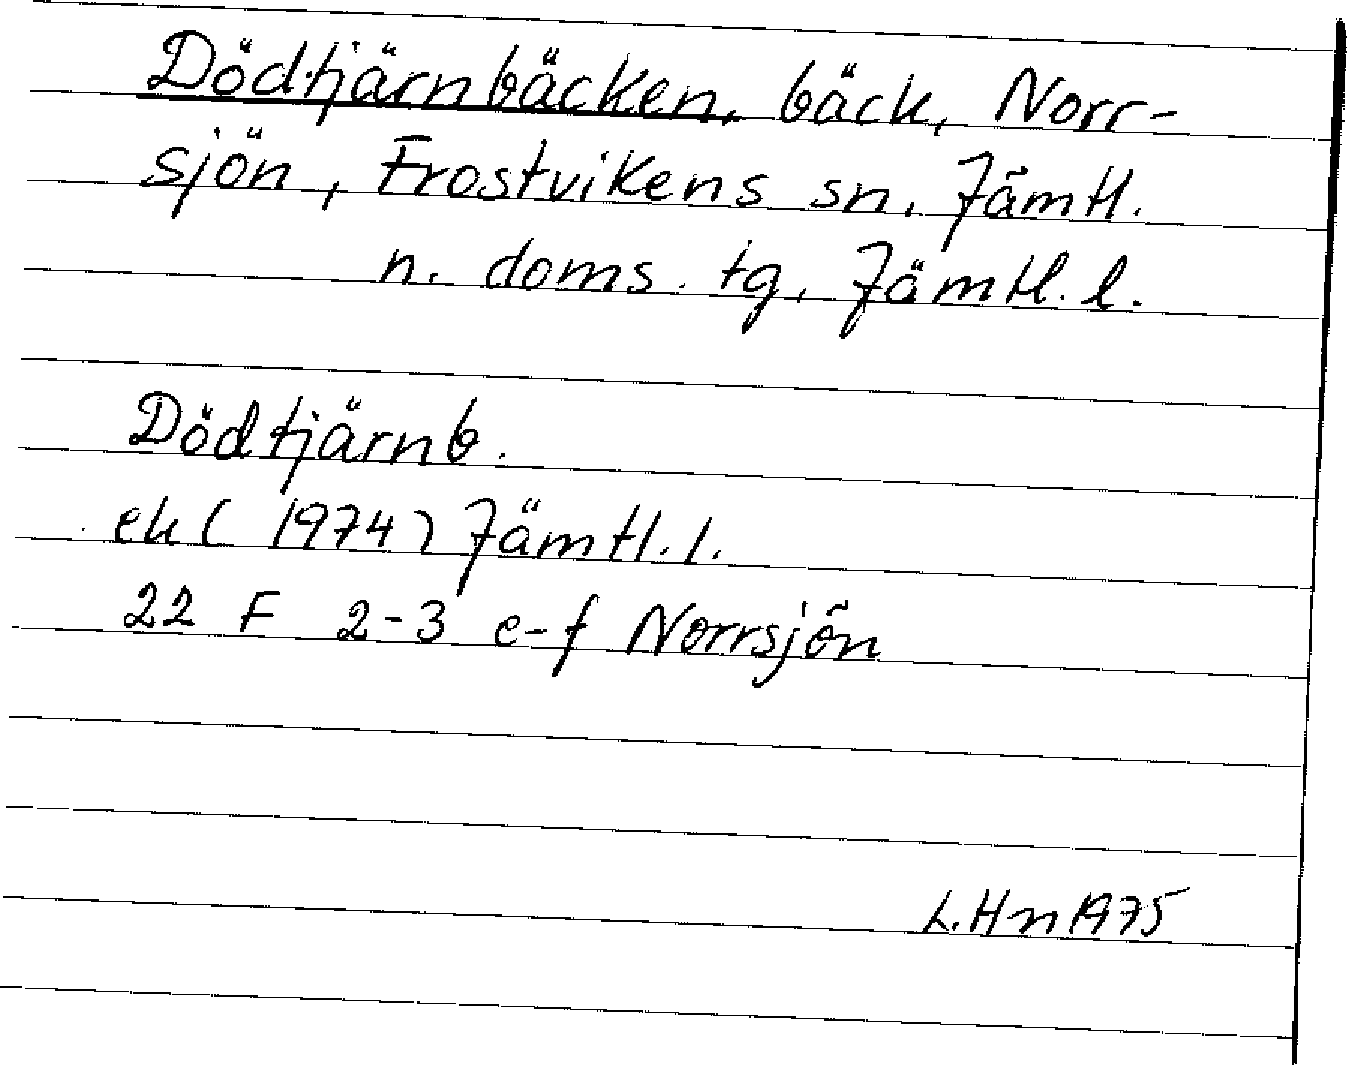 Dödtjärnbäcken, bäck, Norr-
sjön, Frostvikens sn, Jämtl.
n. doms. tg, Jämtl. l.
Dödtjärnb.
ek (1974) Jämtl. l.
22 F 2-3 e-f Norrsjön
L.Hn 1975